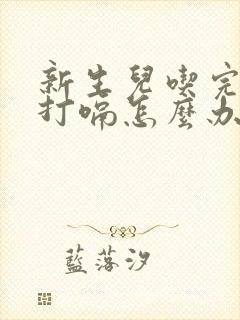 新生兒喫完
打嗝怎麼办
藍落汐